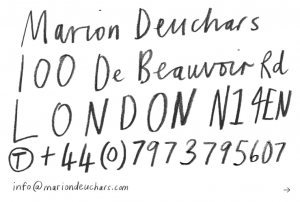 Marion Deuchars
100 De Beauvoir Rd
LONDON N1 4EN
Ⓣ +44(0)7973795607
info@mariondeuchars.com
→